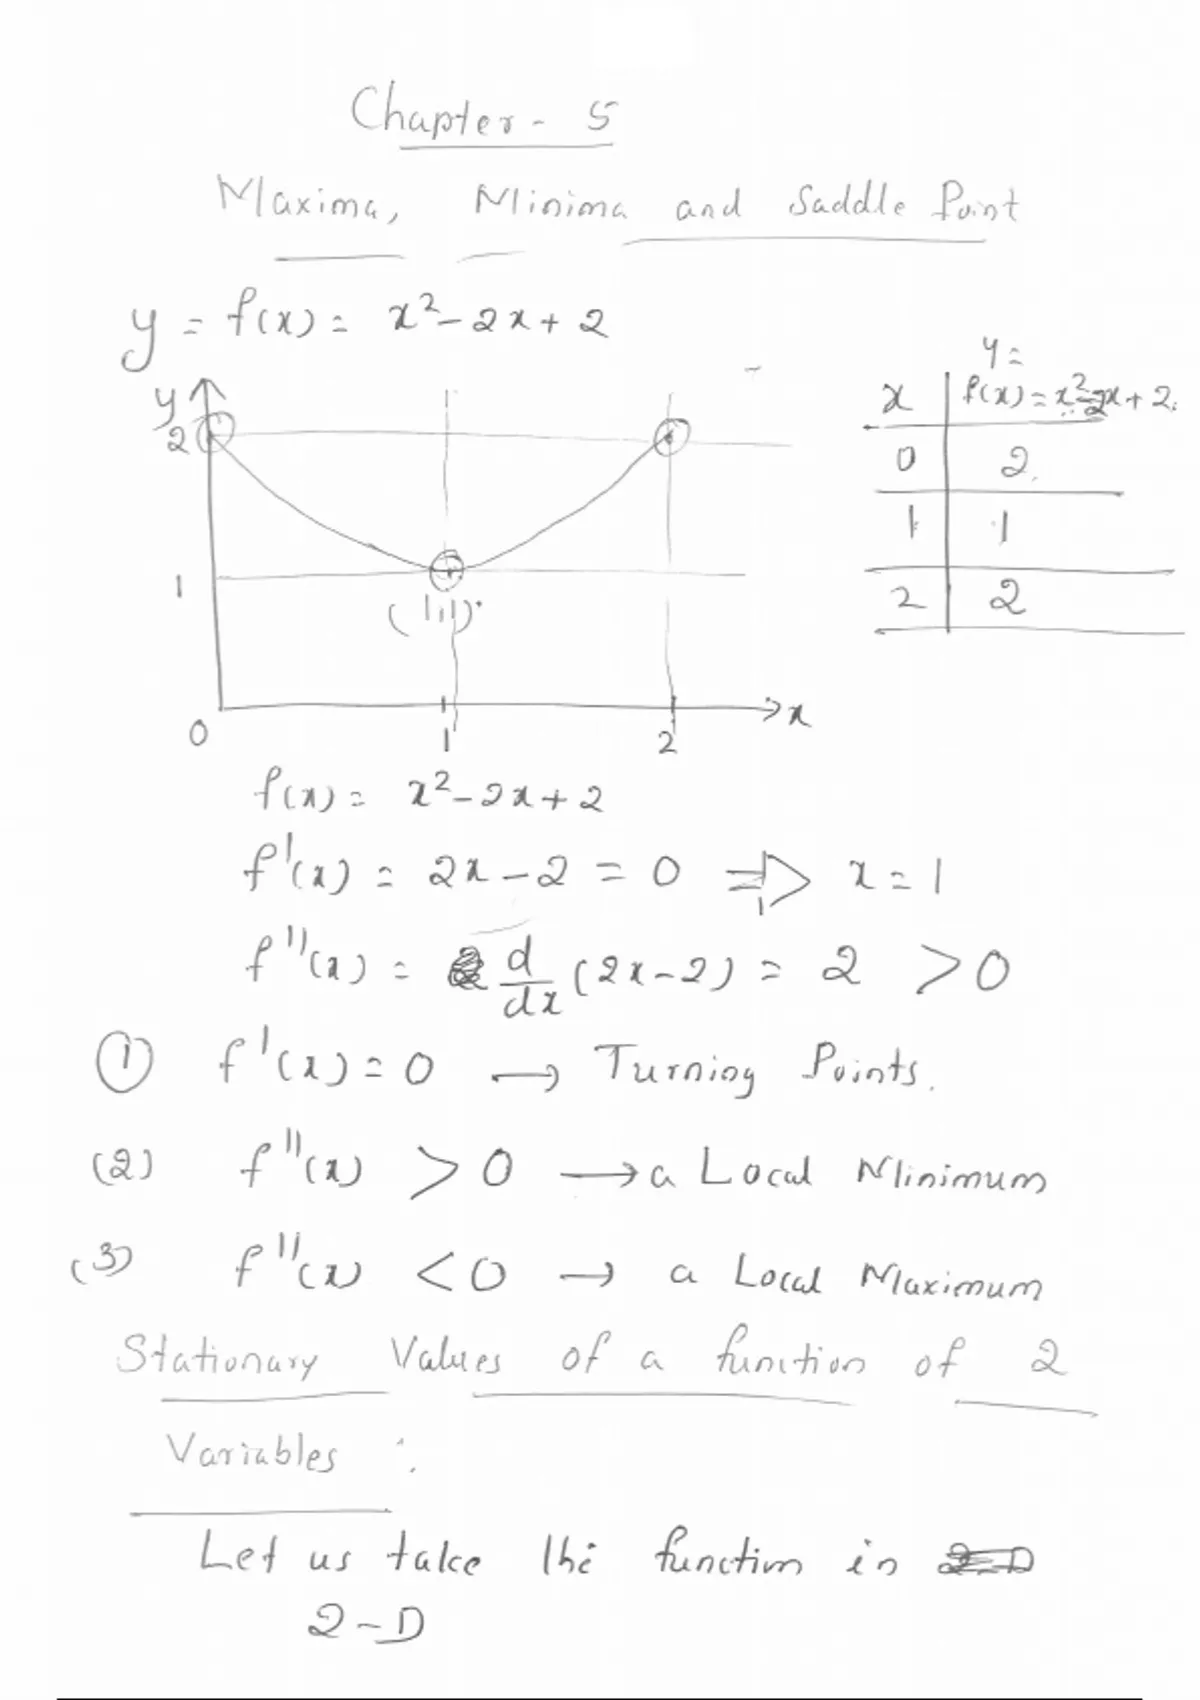 Chapter - 5
Maxima, Minima and Saddle Point
y = f(x) = x² - 2x + 2
y =
x f(x) = x² - 2x + 2.
0 2.
1 1
2 2
y
2
1
(1,1)
0 1 2 x
f(x) = x² - 2x + 2
f'(x) = 2x - 2 = 0 ⇒ x = 1
f''(x) = d/dx (2x - 2) = 2 > 0
① f'(x) = 0 → Turning Points.
(2) f''(x) > 0 → a Local Minimum
(3) f''(x) < 0 → a Local Maximum
Stationary Values of a function of 2
Variables :
Let us take the function in
2-D